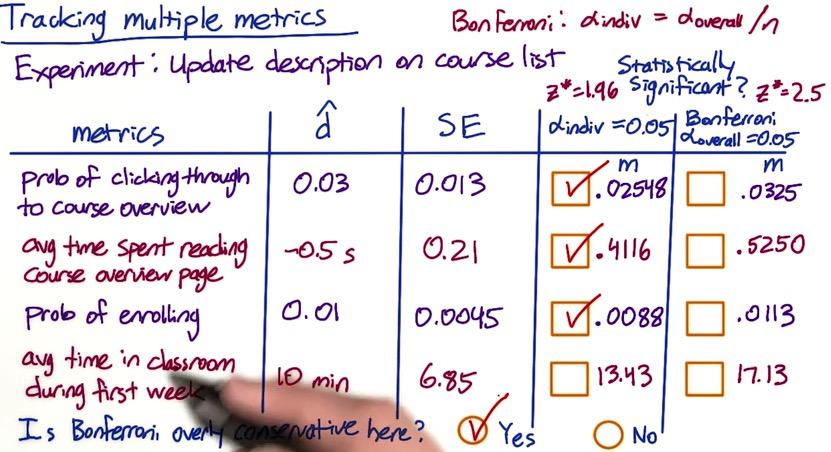 Tracking multiple metrics
Bonferroni: αindiv = αoverall/n
Experiment: Update description on course list
Statistically
Significant?
z*=1.96
z*=2.5
metrics
d̂
SE
αindiv=0.05
Bonferroni
αoverall=0.05
m
m
prob of clicking through
to course overview
0.03
0.013
.02548
.0325
avg time spent reading
course overview page
-0.5 s
0.21
.4116
.5250
prob of enrolling
0.01
0.0045
.0088
.0113
avg time in classroom
during first week
10 min
6.85
13.43
17.13
Is Bonferroni overly conservative here?
Yes
No